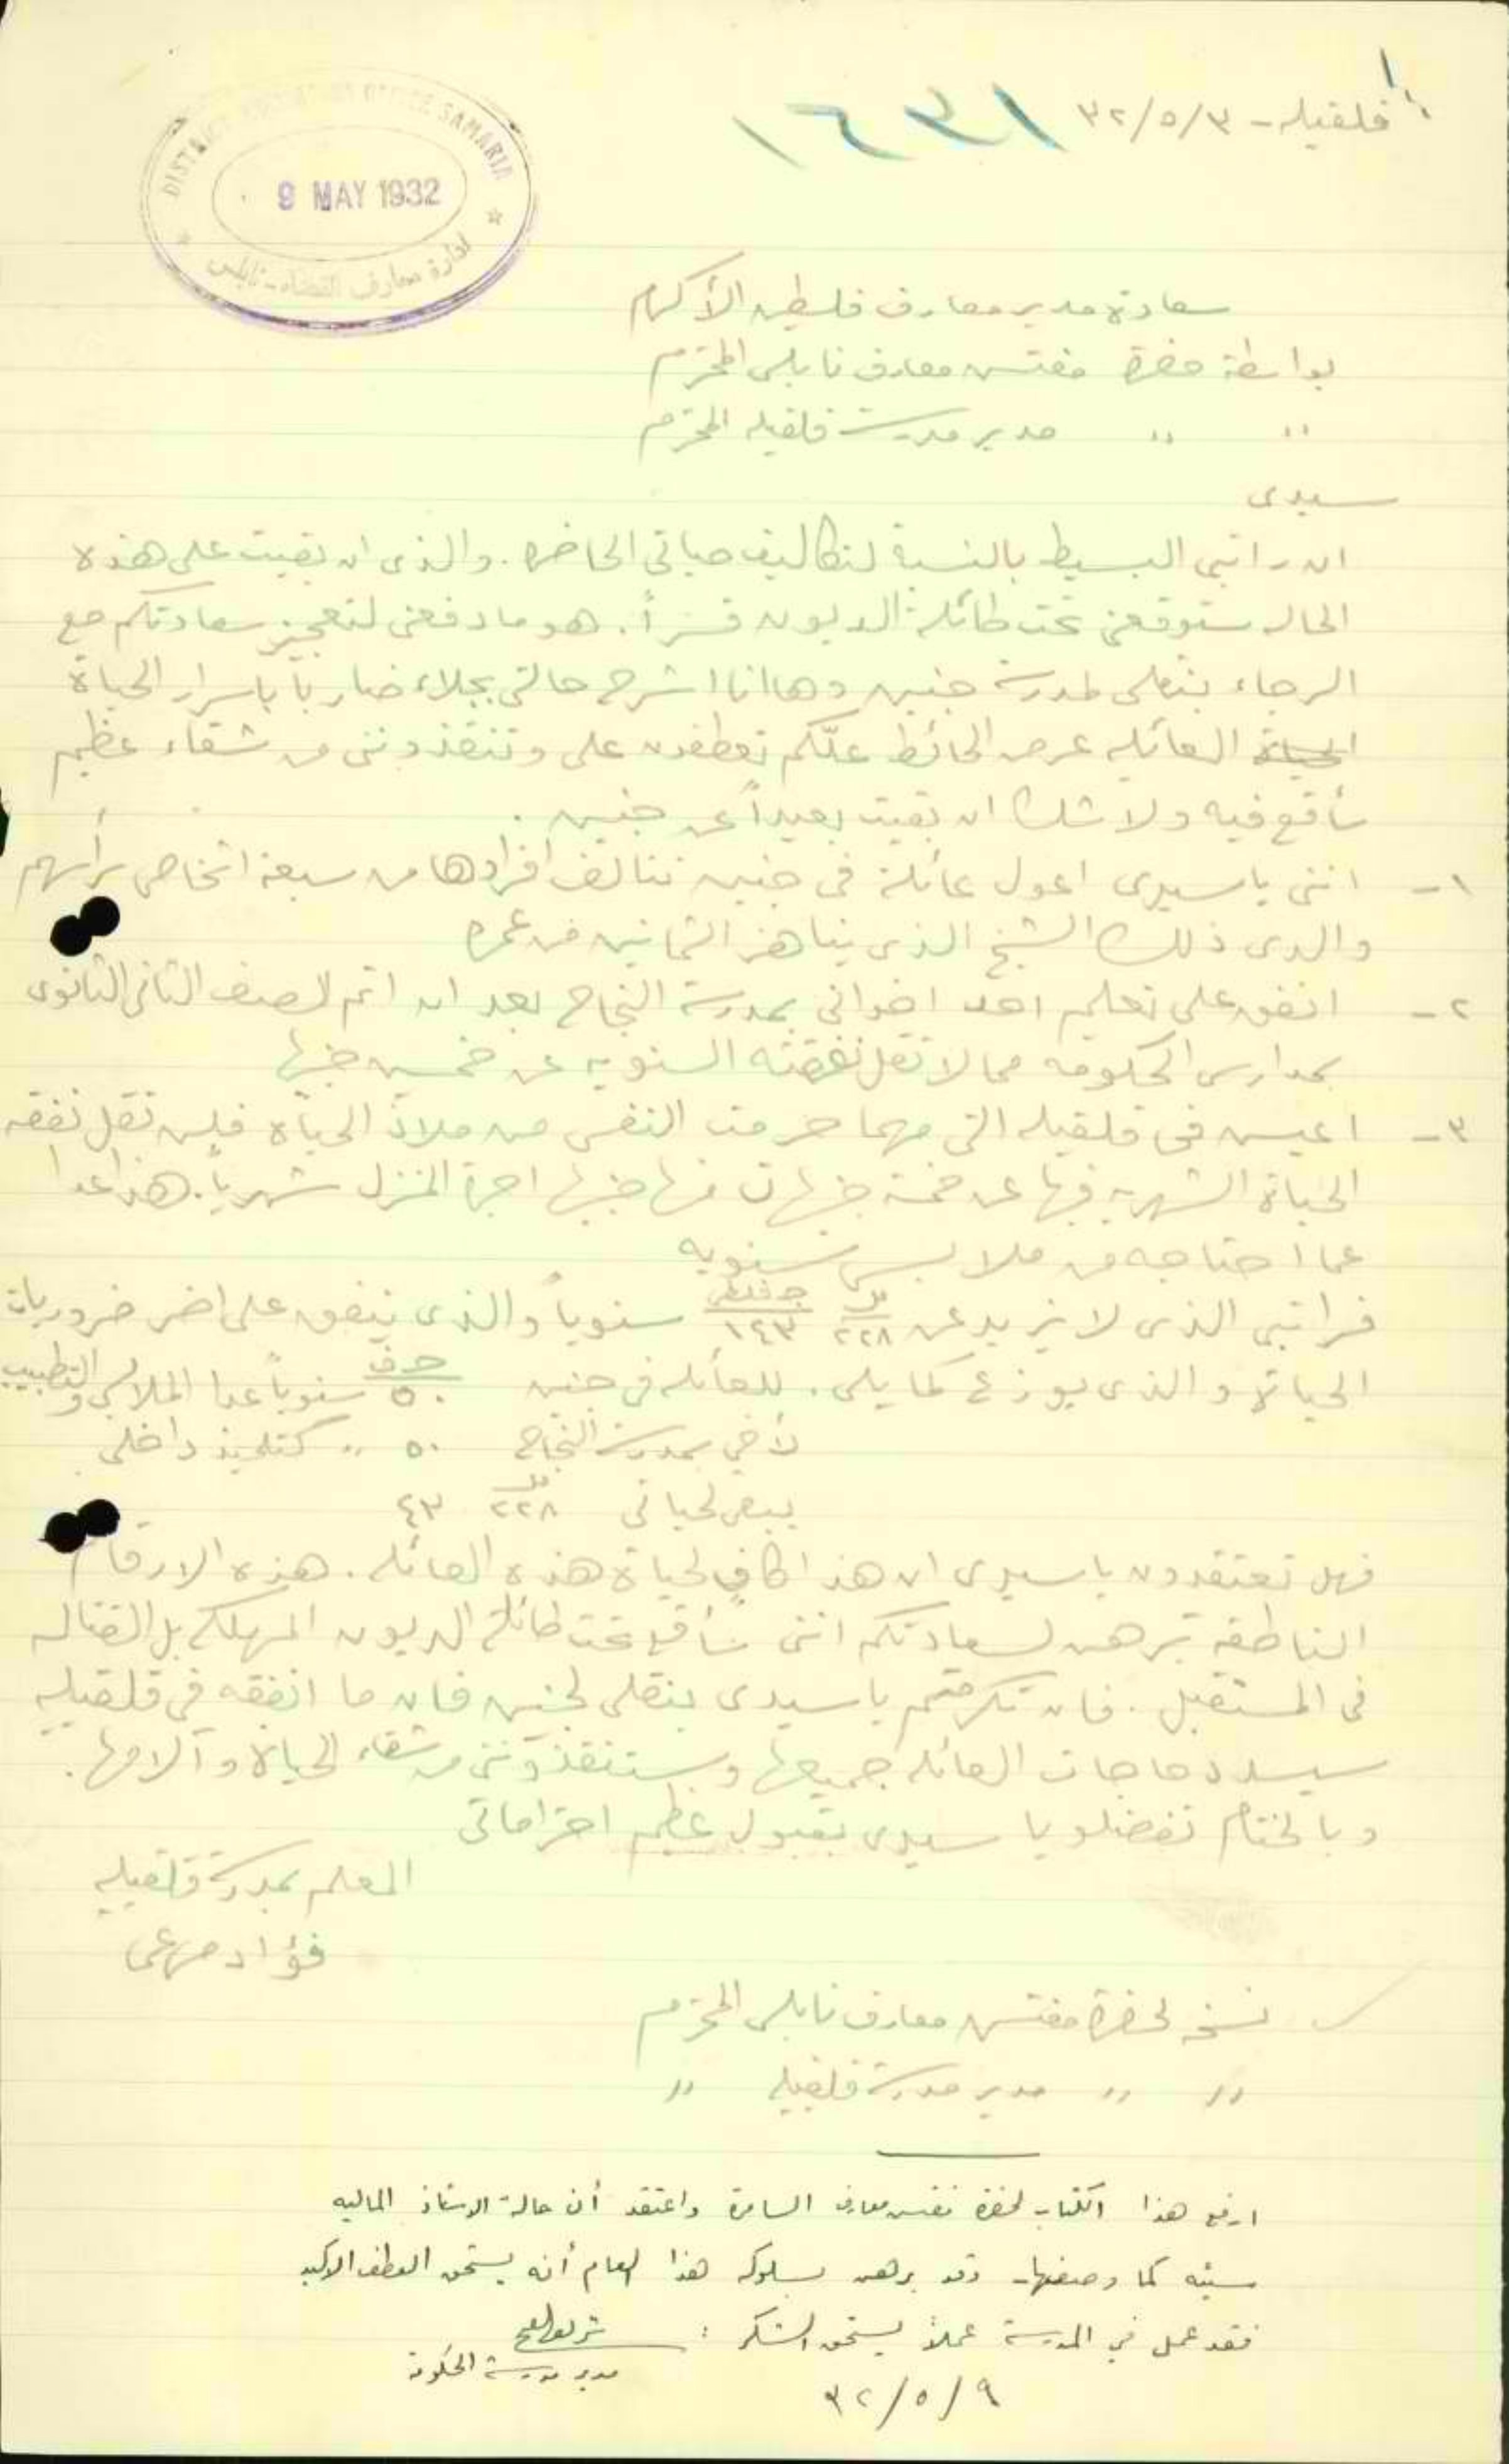 قلقيله - ٣٢/٥/٣
١٦٣١
DISTRICT EDUCATION OFFICE SAMARIA
9 MAY 1932
ادارة معارف القضاء - نابلس
سعادة مدير معارف فلسطين الأكرم
بواسطة حضرة مفتش معارف نابلس المحترم
〃 〃 مدير مدرسة قلقيله المحترم
سيدى
ان راتبي البسيط بالنسبة لتكاليف حياتي الحاضره. والذى ان بقيت على هذه
الحال ستوقعني تحت طائلة الديون قسراً. هو ما دفعنى لتعجيز سعادتكم مع
الرجاء بنقلى لمدرسة جنين وها انا اشرح حالتى بجلاء ضارباً باسرار الحياة
الحياة العائليه عرض الحائط علّكم تعطفون على وتنقذوننى من شقاء عظيم
سأقع فيه ولا شك ان بقيت بعيداً عن جنين.
١- اننى يا سيدى اعول عائلة فى جنين تتالف افرادها من سبعة اشخاص يرأسهم
والدى ذلك الشيخ الذى يناهز الثمانين من عمره
٢- انفق على تعليم احد اخوانى بمدرسة النجاح بعد ان اتم الصف الثانى الثانوى
بمدارس الحكومه مما لا تقل نفقته السنويه عن خمسين جنيها
٣- اعيش فى قلقيله التى مهما حرمت النفس من ملاذ الحياه فلن تقل نفقه
الحياة الشهريه فيها عن خمسة جنيهات منها جنيها اجرة المنزل شهرياً. هذا عدا
عما احتاجه من ملابس سنويه
فراتبي الذى لا يزيد عن مل ٢٢٨ ج فلسطينى ١٤٣ سنوياً والذى ينفق على اخر ضروريات
الحياة والذى يوزع كما يلى. للعائله فى جنين ج ف ٥٠ سنوياً عدا الملابس والتطبيب
لأخي بمدرسة النجاح ٥٠ 〃 كتلميذ داخلى.
يبقى لحياتى مل ٢٢٨ ٤٣
فهل تعتقدون يا سيدى ان هذا كافٍ لحياة هذه العائله. هذه الارقام
الناطقه تبرهن لسعادتكم اننى سأقع تحت طائلة الديون المهلكه بل القتاله
فى المستقبل. فان تكرمتم يا سيدى بنقلى لجنين فان ما انفقه فى قلقيليه
سيسدد حاجات العائله جميعها وستنقذوننى من شقاء الحياة وآلامها.
وبالختام تفضلو يا سيدى بقبول عظيم احتراماتى
المعلم بمدرسة قلقيليه
فؤاد مرعى
نسخه لحضرة مفتش معارف نابلس المحترم
〃 〃 مدير مدرسة قلقيليه 〃
ارفع هذا الكتاب لحضرة مفتش معارف السامرة واعتقد أن حالة الاستاذ الماليه
سيئه كما وصفها - وقد برهن بسلوكه هذا العام أنه يستحق العطف الاكيد
فقد عمل في المدرسة عملاً يستحق الشكر :
مدير مدرسة الحكومة
٣٢/٥/٩